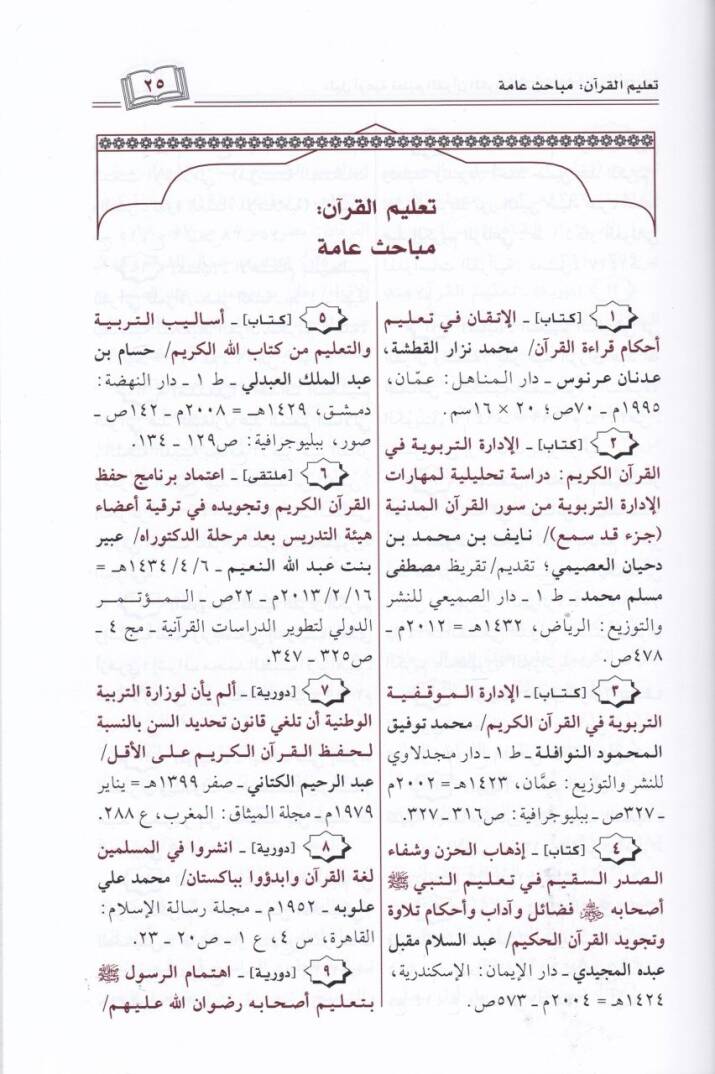 تعليم القرآن: مباحث عامة
٢٥
تعليم القرآن:
مباحث عامة
١ [كتاب] ـ الإتقان في تعليم
أحكام قراءة القرآن/ محمد نزار القطشة،
عدنان عرنوس ـ دار المناهل: عمّان،
١٩٩٥م ـ ٧٠ص؛ ٢٠ × ١٦سم.
٢ [كتاب] ـ الإدارة التربوية في
القرآن الكريم: دراسة تحليلية لمهارات
الإدارة التربوية من سور القرآن المدنية
(جزء قد سمع)/ نايف بن محمد بن
دحيان العصيمي؛ تقديم/ تقريظ مصطفى
مسلم محمد ـ ط ١ ـ دار الصميعي للنشر
والتوزيع: الرياض، ١٤٣٢هـ = ٢٠١٢م ـ
٤٧٨ص.
٣ [كتاب] ـ الإدارة الموقفية
التربوية في القرآن الكريم/ محمد توفيق
المحمود النوافلة ـ ط ١ ـ دار مجدلاوي
للنشر والتوزيع: عمَّان، ١٤٢٣هـ = ٢٠٠٢م
ـ ٣٢٧ص ـ ببليوجرافية: ص٣١٦ ـ ٣٢٧.
٤ [كتاب] ـ إذهاب الحزن وشفاء
الصدر السقيم في تعليم النبي ﷺ
أصحابه فضائل وآداب وأحكام تلاوة
وتجويد القرآن الحكيم/ عبد السلام مقبل
عبده المجيدي ـ دار الإيمان: الإسكندرية،
١٤٢٤هـ = ٢٠٠٤م ـ ٥٧٣ص.
٥ [كتاب] ـ أساليب التربية
والتعليم من كتاب الله الكريم/ حسام بن
عبد الملك العبدلي ـ ط ١ ـ دار النهضة:
دمشق، ١٤٢٩هـ = ٢٠٠٨م ـ ١٤٢ص ـ
صور، ببليوجرافية: ص١٢٩ ـ ١٣٤.
٦ [ملتقى] ـ اعتماد برنامج حفظ
القرآن الكريم وتجويده في ترقية أعضاء
هيئة التدريس بعد مرحلة الدكتوراه/ عبير
بنت عبد الله النعيم ـ ١٤٣٤/٤/٦هـ =
٢٠١٣/٢/١٦م ـ ٢٢ص ـ المؤتمر
الدولي لتطوير الدراسات القرآنية ـ مج ٤ ـ
ص٣٢٥ ـ ٣٤٧.
٧ [دورية] ـ ألم يأن لوزارة التربية
الوطنية أن تلغي قانون تحديد السن بالنسبة
لحفظ القرآن الكريم على الأقل/
عبد الرحيم الكتاني ـ صفر ١٣٩٩هـ = يناير
١٩٧٩م ـ مجلة الميثاق: المغرب، ع ٢٨٨.
٨ [دورية] ـ انشروا في المسلمين
لغة القرآن وابدؤوا بباكستان/ محمد علي
علوبه ـ ١٩٥٢م ـ مجلة رسالة الإسلام:
القاهرة، س ٤، ع ١ ـ ص٢٠ ـ ٢٣.
٩ [دورية] ـ اهتمام الرسول ﷺ
بتعليم أصحابه رضوان الله عليهم/